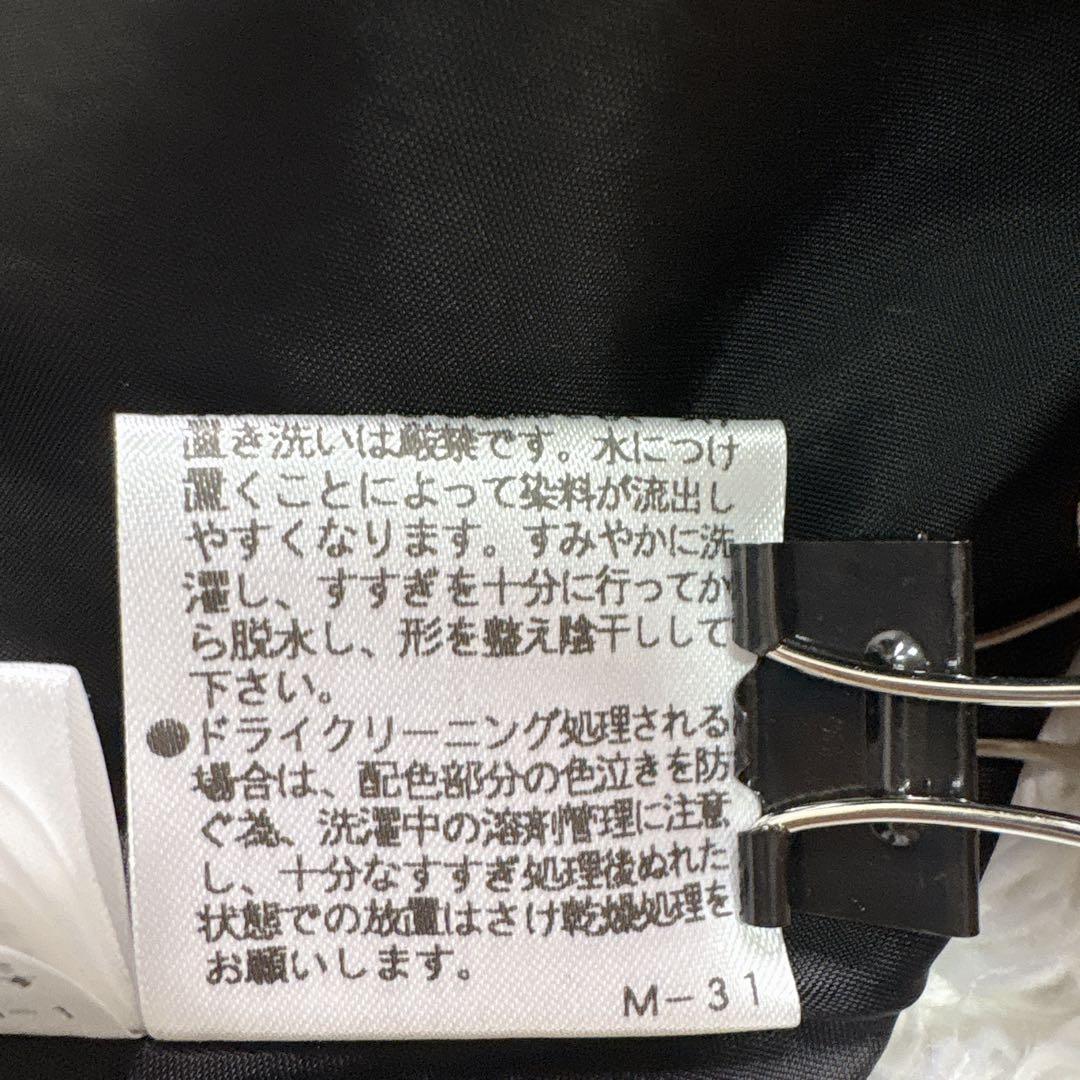 置き洗いは厳禁です。水につけ
置くことによって染料が流出し
やすくなります。すみやかに洗
濯し、すすぎを十分に行ってか
ら脱水し、形を整え陰干しして
下さい。
●ドライクリーニング処理される
場合は、配色部分の色泣きを防
ぐ為、洗濯中の溶剤管理に注意
し、十分なすすぎ処理後ぬれた
状態での放置はさけ乾燥処理を
お願いします。
M-31